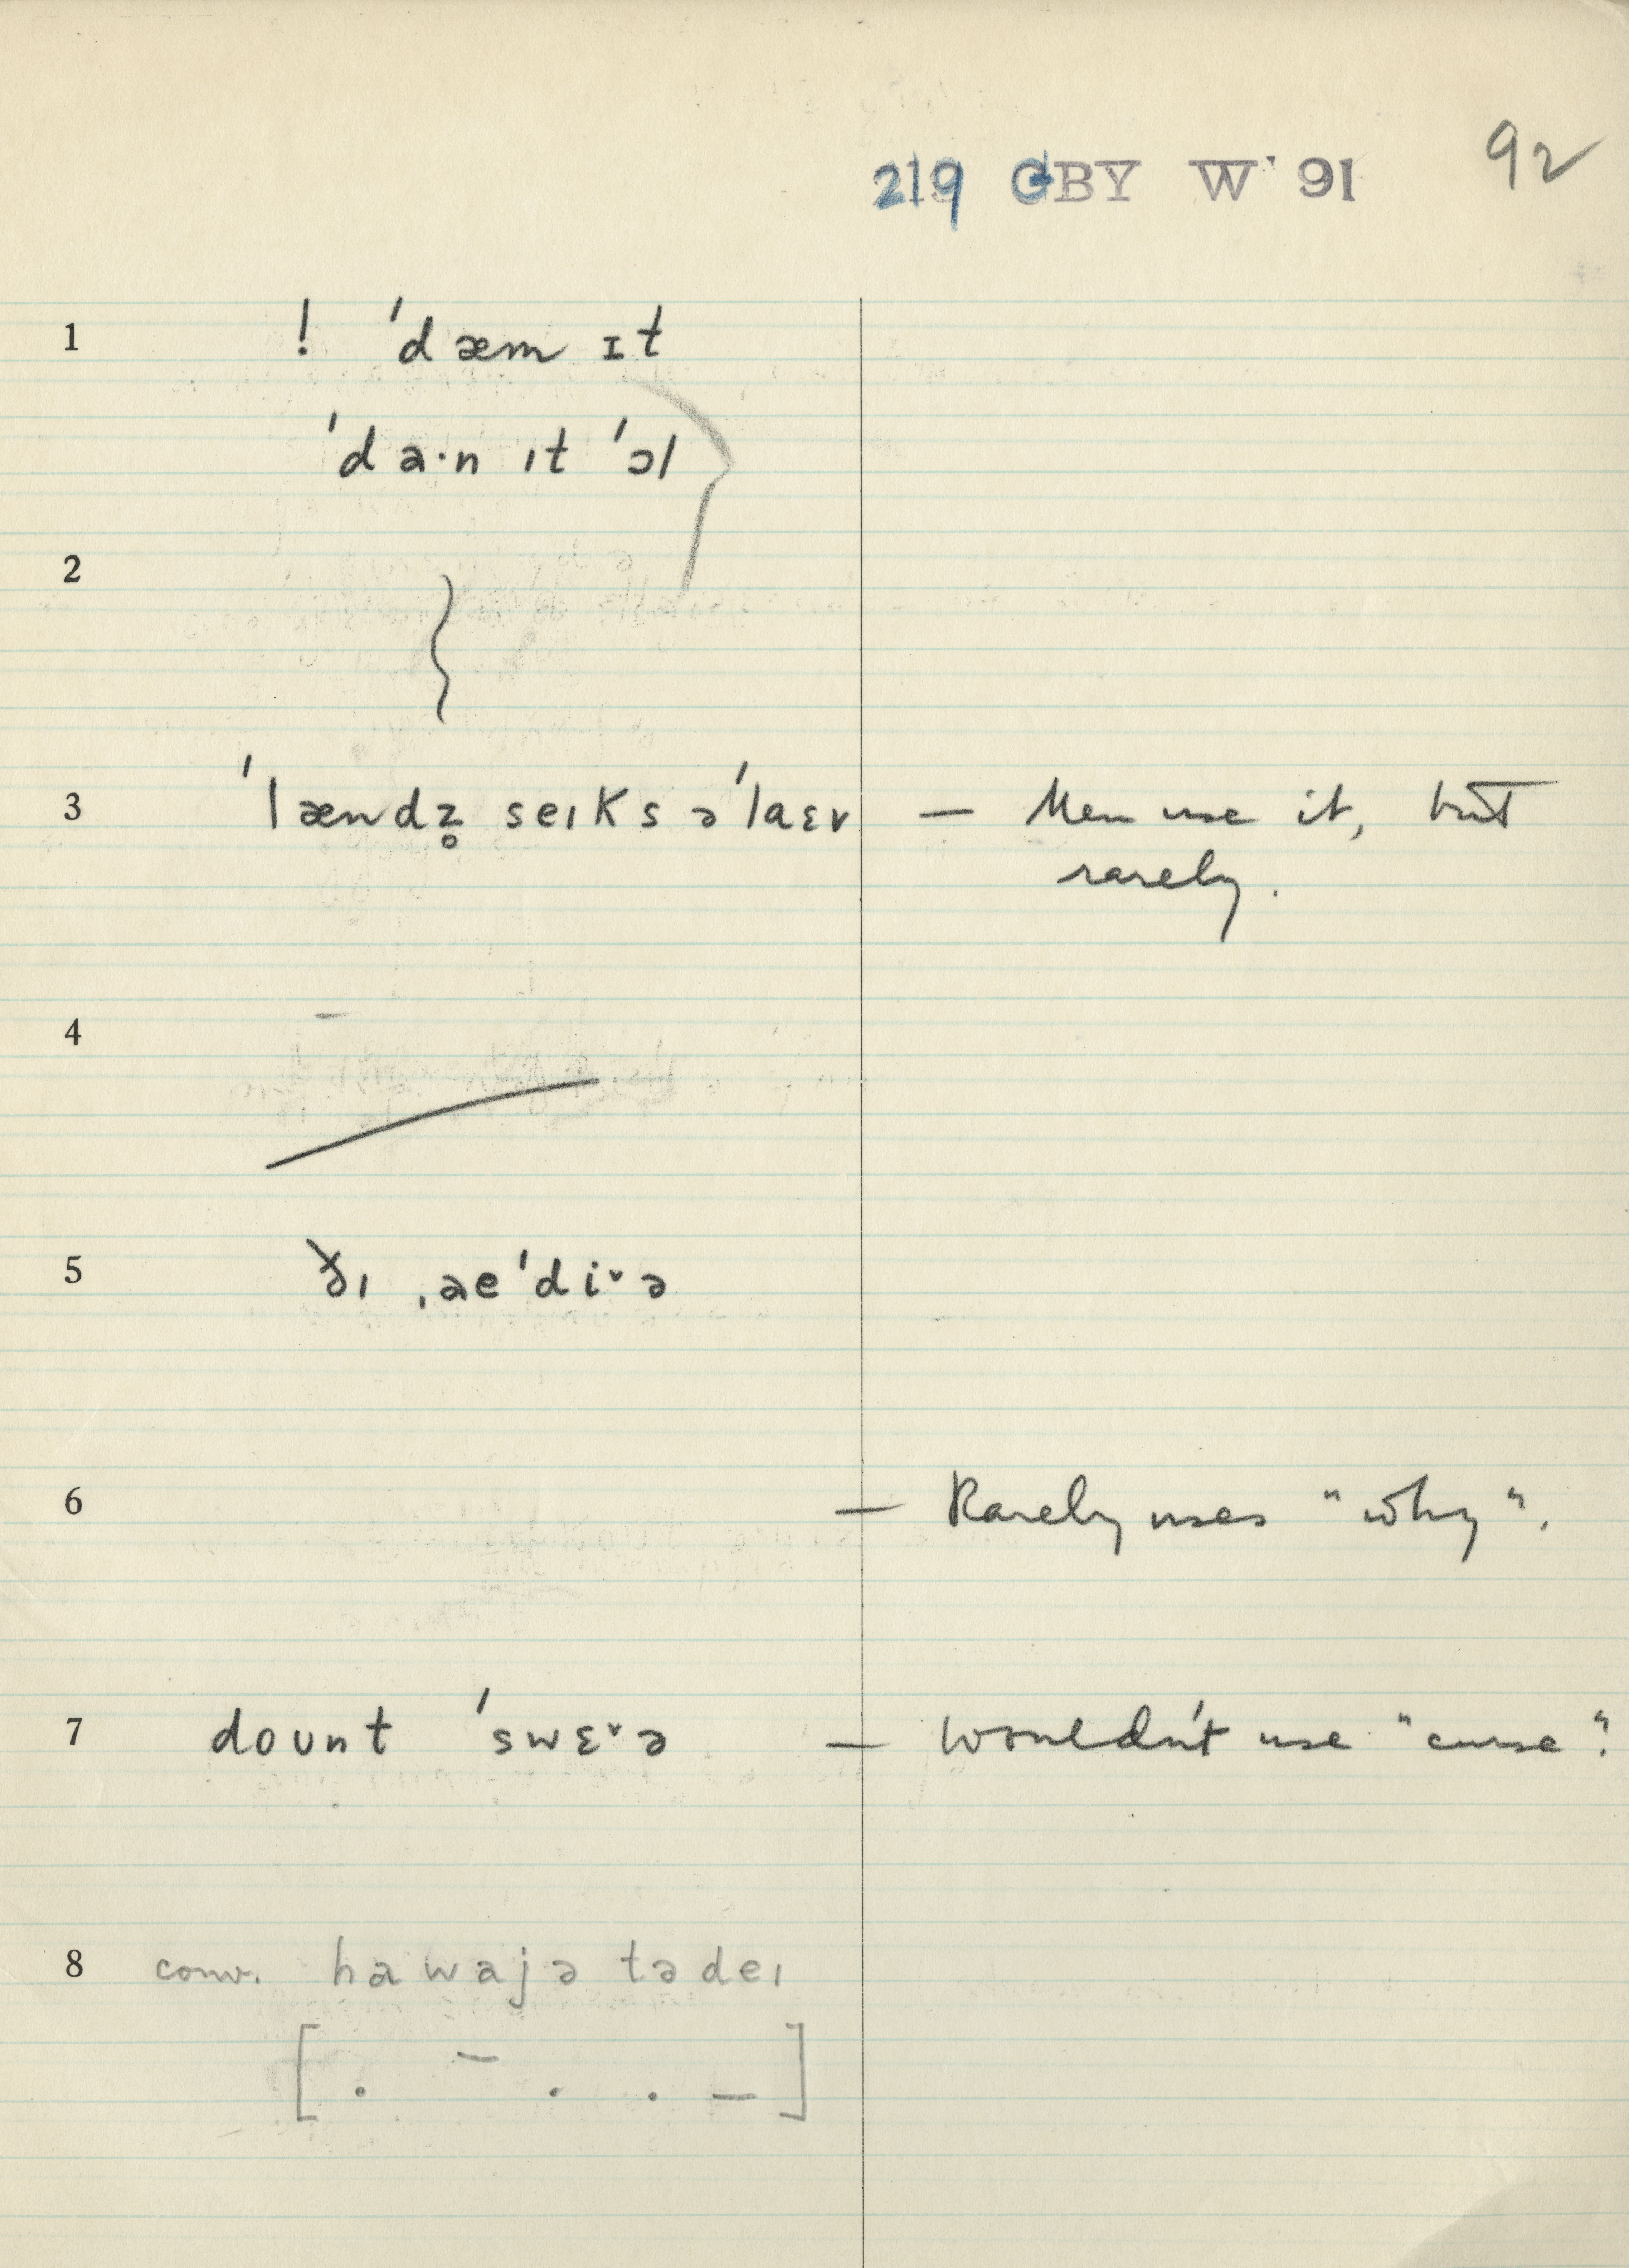 219 GBY W' 91 92
1 ! 'dæm ɪt
'da·n ıt 'ɔl
2
3 'lændz̥ seıks ə'laɛv — Men use it, but
rarely.
4 –
5 ðı ˌae'diˇə
6 — Rarely uses "why".
7 dount 'swɛˇə — wouldn't use "curse".
8 conv. hawajə tədeı
[ . – . . – ]